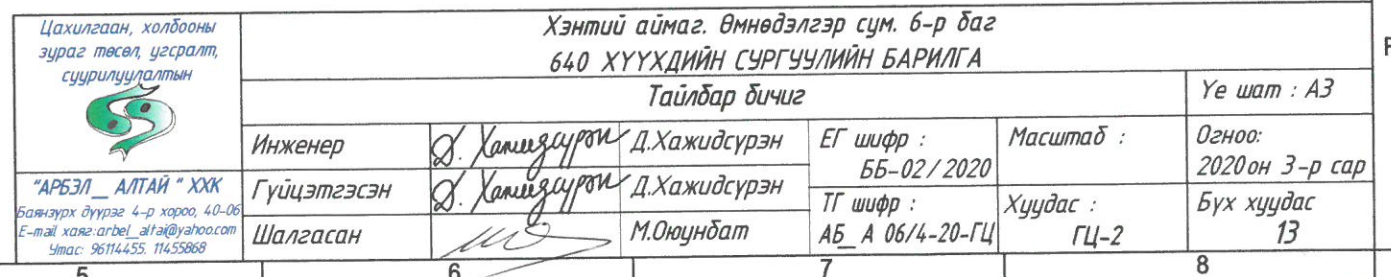 Цахилгаан, холбооны
зураг төсөл, угсралт,
суурилуулалтын
"АРБЭЛ__ АЛТАЙ " ХХК
Баянзүрх дүүрэг 4-р хороо, 40-06
E-mail хаяг:arbel_altai@yahoo.com
Утас: 96114455, 11455868
Хэнтий аймаг. Өмнөдэлгэр сум. 6-р баг
640 ХҮҮХДИЙН СУРГУУЛИЙН БАРИЛГА
Тайлбар бичиг
Үе шат : А3
Инженер
Д. Хажидсүрэн
Д.Хажидсүрэн
ЕГ шифр :
ББ-02/2020
Масштаб :
Огноо:
2020он 3-р сар
Гүйцэтгэсэн
Д. Хажидсүрэн
Д.Хажидсүрэн
ТГ шифр :
АБ_А 06/4-20-ГЦ
Хуудас :
ГЦ-2
Бүх хуудас
13
Шалгасан
М.Оюунбат
5
6
7
8